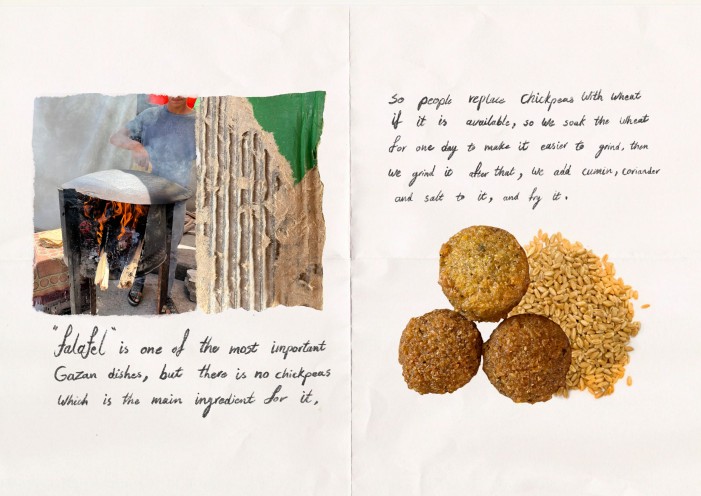 "falafel" is one of the most important
Gazan dishes, but there is no chickpeas
which is the main ingredient for it,
So people replace chickpeas with wheat
if it is available, so we soak the wheat
for one day to make it easier to grind, then
we grind it after that, we add cumin, coriander
and salt to it, and fry it.